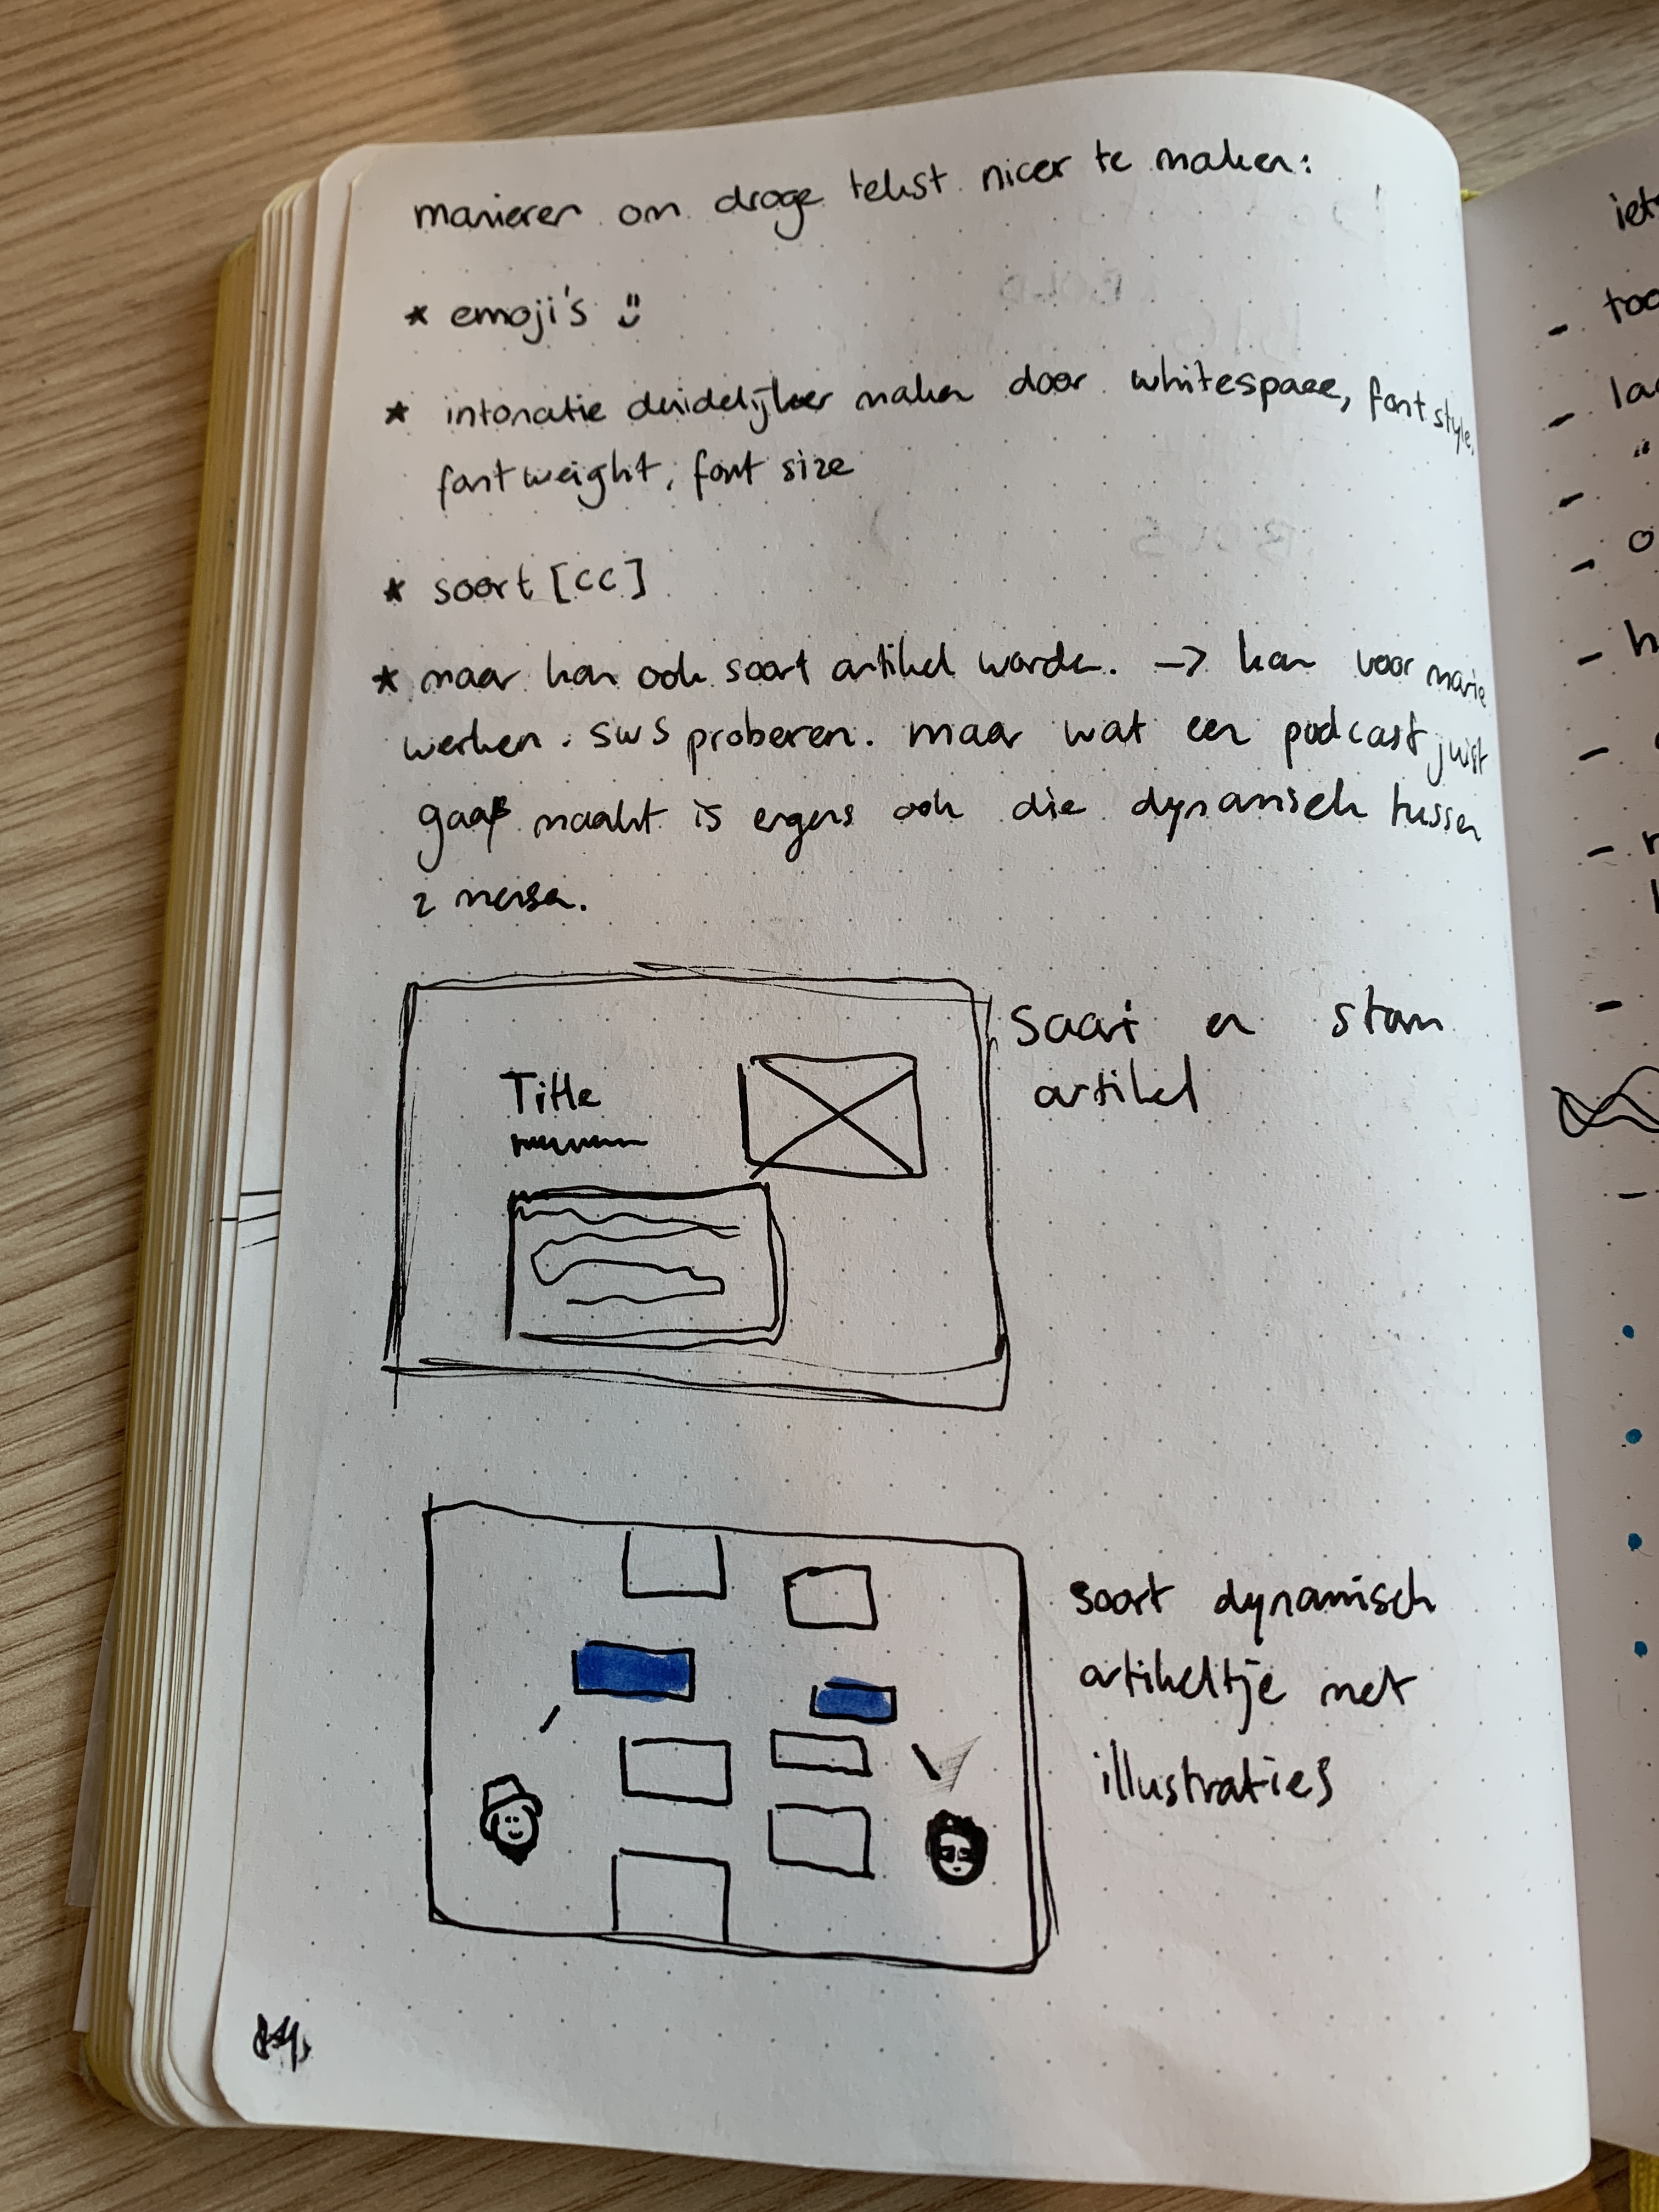 manieren om droge tekst nicer te maken:
* emoji's
* intonatie duidelijker maken door whitespace, font style,
font weight, font size
* soort [CC]
* maar kan ook soort artikel worden. -> kan voor marie
werken. sws proberen. maar wat een podcast juist
gaaf maakt is ergens ook die dynamisch tussen
2 mensen.
saai en stom
artikel
Title
soort dynamisch
artikeltje met
illustraties